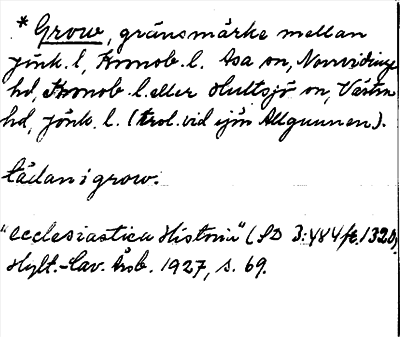 * Grow, gränsmärke mellan
Jönk. l, Kronob. l. Asa sn, Norrvidinge
hd, Kronob. l. eller Hultsjö sn, Västra
hd, Jönk. l. (trol. vid sjön Allgunnen).
tädan i grow.
"Ecclesiastica Historia" (SD 3:484 fr. 1320),
Hylt.-Cav. Årsb. 1927, s. 69.